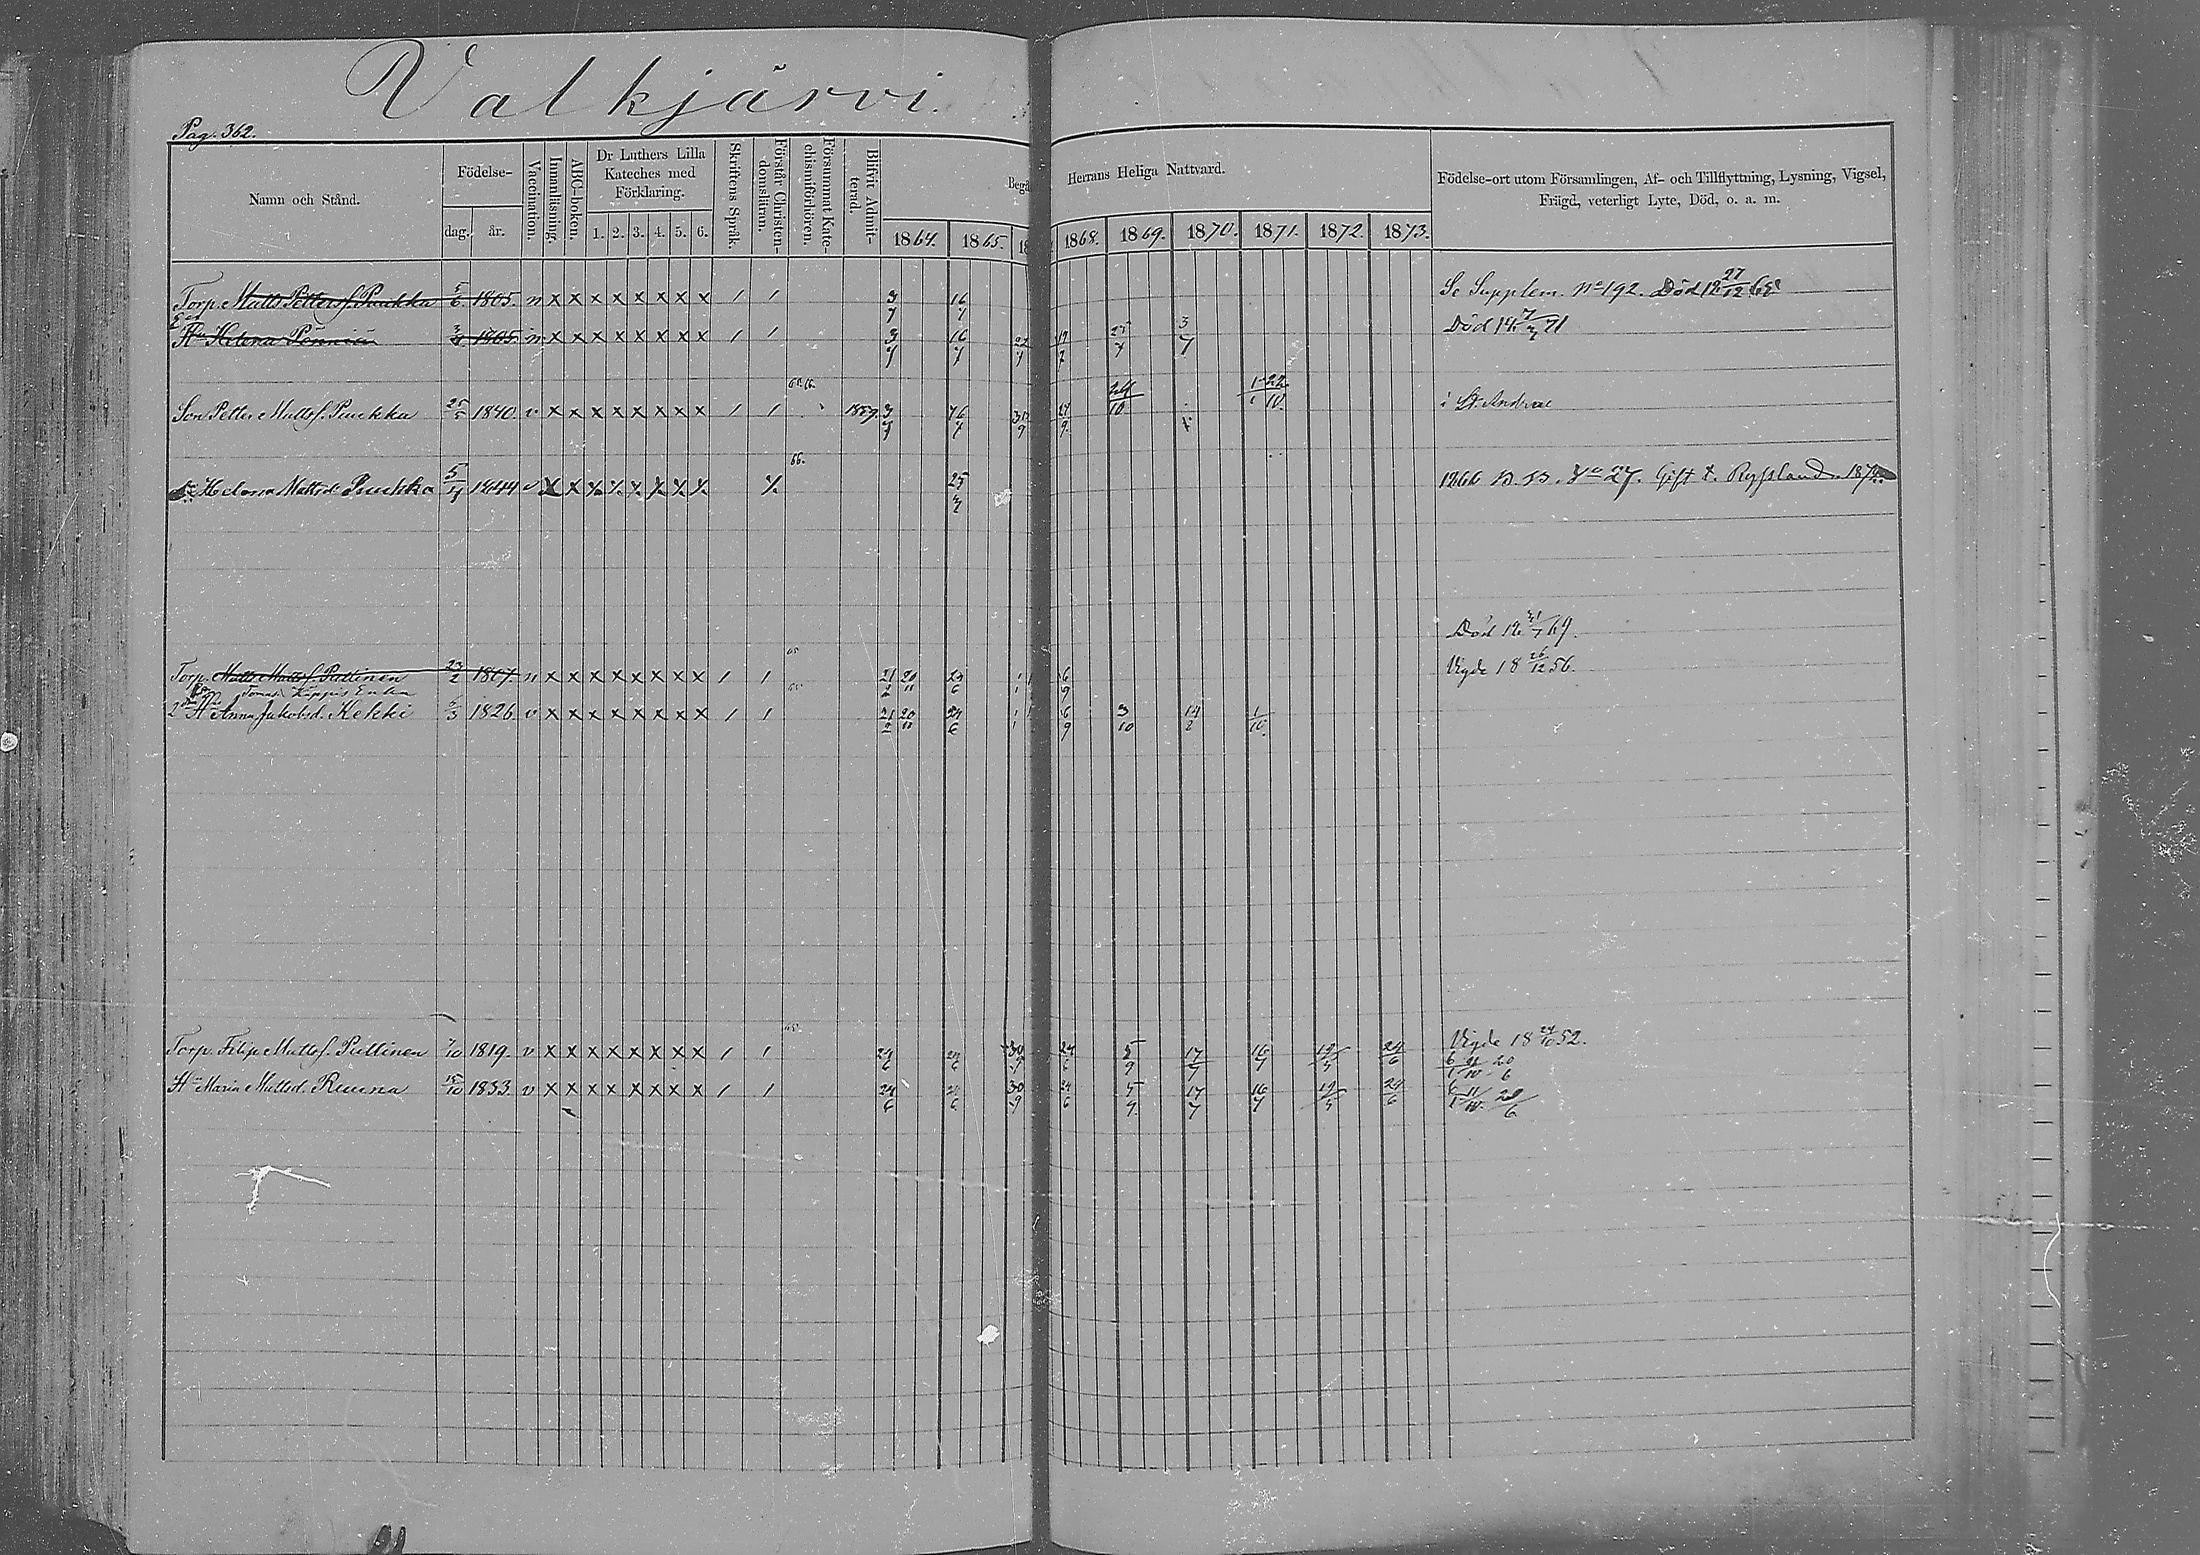 Valkjärvi.
Pag. 362.
Namn och Stånd. Födelse- dag. år. Vaccination. Innanläsning. ABC-boken. Dr Luthers Lilla Kateches med Förklaring. 1. 2. 3. 4. 5. 6. Skriftens Språk. Förstår Christendomsläran. Försummat Katechismiförhören. Blifvit Admitterad. Begå Herrans Heliga Nattvard. 1864. 1865. 18 1868. 1869. 1870. 1871. 1872. 1873. Födelse-ort utom Församlingen, Af- och Tillflyttning, Lysning, Vigsel, Frägd, veterligt Lyte, Död, o. a. m.
Torp. Matts Petterss. Puukka 5/6 1805. n x x x x x x x x / / 3/7 16/7 Se Supplem. No 192. Död 18 27/12 68
Hu Helena Pönniä 1805. n x x x x x x x x / / 3/7 16/7 22/7 19/7 25/7 3/7 Död 18 71
65.66.
Son Petter Mattss. Puukka 25/5 1840. v x x x x x x x x / / 1859. 3/7 16/7 27/9. 24/10 i St. Andreae
66.
Helena Mattsd. Puukka 5/4 1844 v x x x x x x x x x 25/7 1866 Gift t. Ryssland 187
Död 18 69.
65
Torp. Matts Mattss. Pullinen 23/2 1807. n x x x x x x x x / / 21/2 20/11 6/9 Vigde 18 26/12 56.
Tomas Käppis Enka
2dra Hu Anna Jakobsd. Kekki 6/3 1826. v x x x x x x x x / / 21/2 20/11 24/6 6/9 3/10 14/2 1/10.
65.
Torp. Filip Mattss. Pullinen 7/10 1819. v x x x x x x x x / / 24/6 24/6 30/9 24/6 5/9 17/7 16/7 19/5 24/6 Vigde 18 24/10 52.
Hu Maria Mattsd. Ruuna 15/10 1833. v x x x x x x x x / / 24/6 24/6 30/9 24/6 5/9. 17/7 16/7 19/5 24/6 20/6